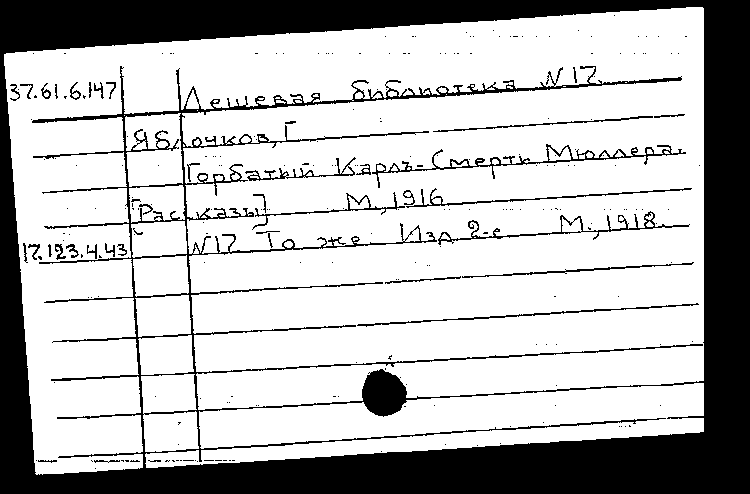 37.61.6.147 Дешевая библиотека N 17
Яблочков, Г
Горбатый Карлъ-Смерть Мюллера.
[Рассказы] М., 1916
17.123.4.43 N17 То же Изд 2-е М., 1918.